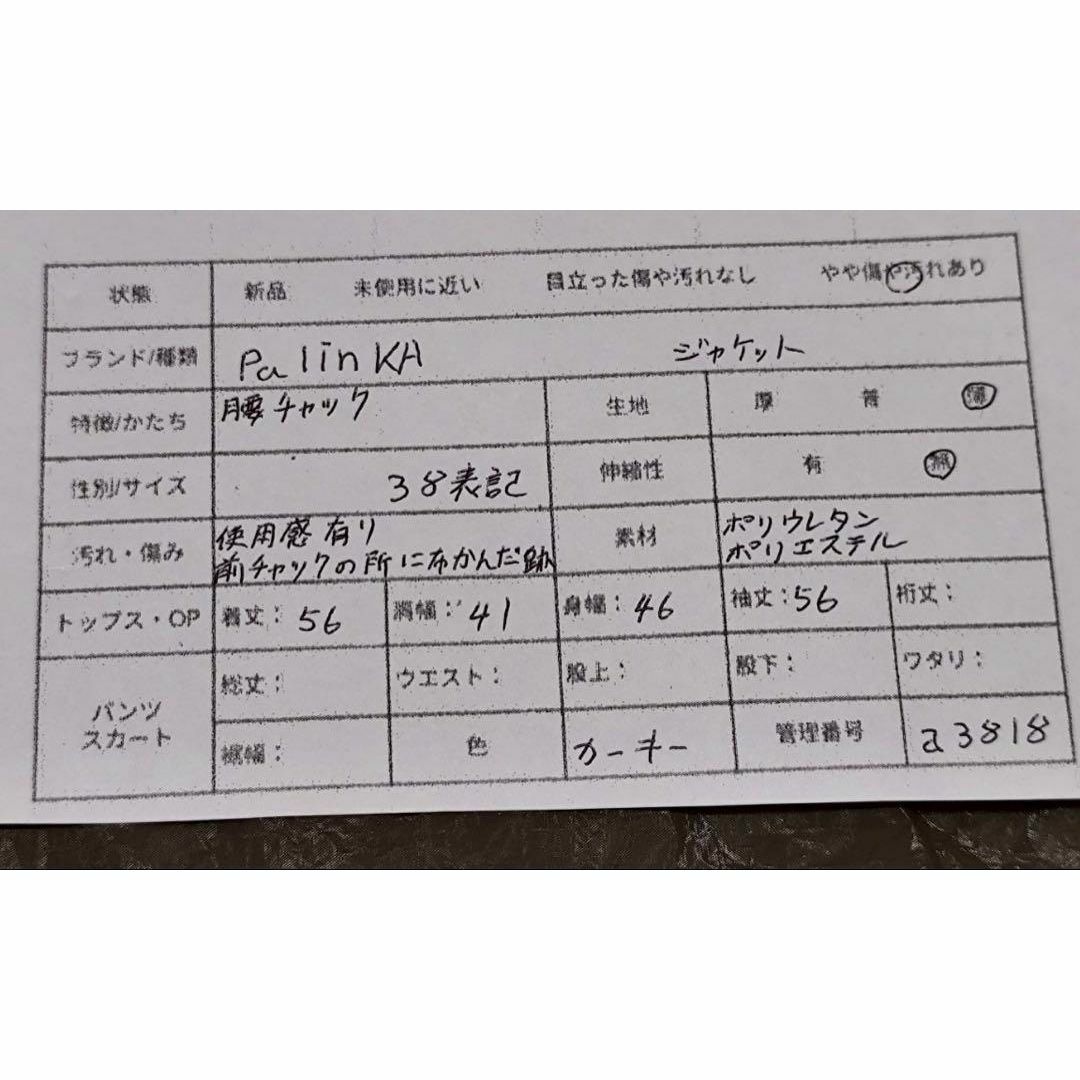 状態 新品 未使用に近い 目立った傷や汚れなし やや傷や汚れあり
ブランド/種類 PalinKA ジャケット
特徴/かたち 腰チャック 生地 厚 普 薄
性別/サイズ 38表記 伸縮性 有 無
汚れ・傷み 使用感有り
前チャックの所に布かんだ跡
素材 ポリウレタン
ポリエステル
トップス・OP 着丈: 56 肩幅: 41 身幅: 46 袖丈: 56 裄丈:
パンツ
スカート
総丈: ウエスト: 股上: 股下: ワタリ:
裾幅: 色 カーキー 管理番号 a3818